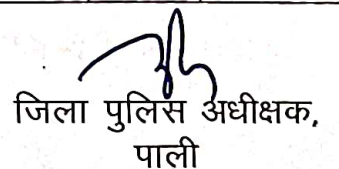 जिला पुलिस अधीक्षक,
पाली